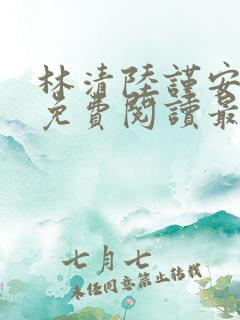 林清陸謹安
免費閱讀最
七月七
未经同意禁止转载